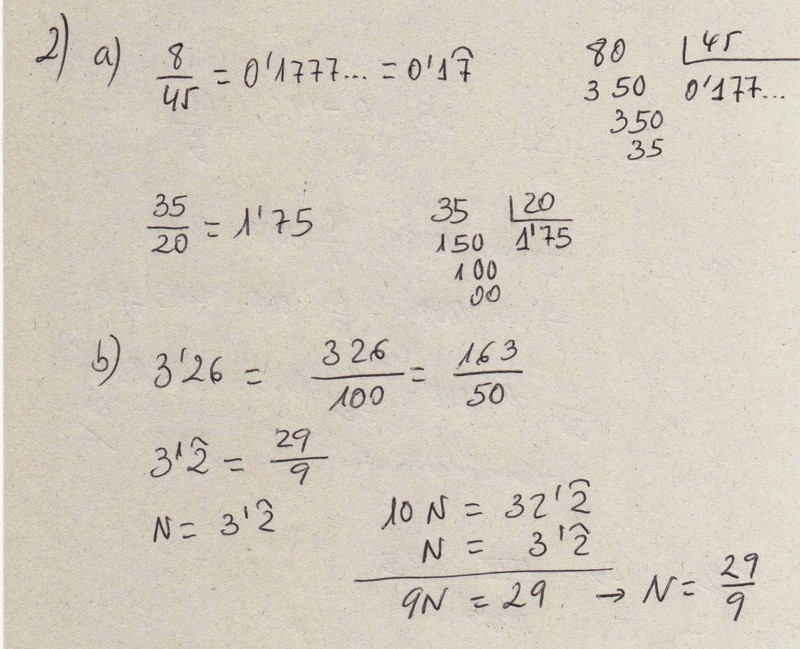 2) a) 8/45 = 0'1777... = 0'17̂
80 |45
350 0'177...
350
35
35/20 = 1'75
35 |20
150 1'75
100
00
b) 3'26 = 326/100 = 163/50
3'2̂ = 29/9
N = 3'2̂
10 N = 32'2̂
N = 3'2̂
9N = 29 → N = 29/9